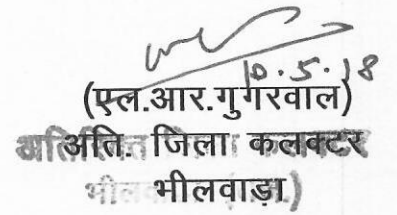 10.5.18
(एल.आर.गुगरवाल)
अति. जिला कलक्टर
भीलवाड़ा)